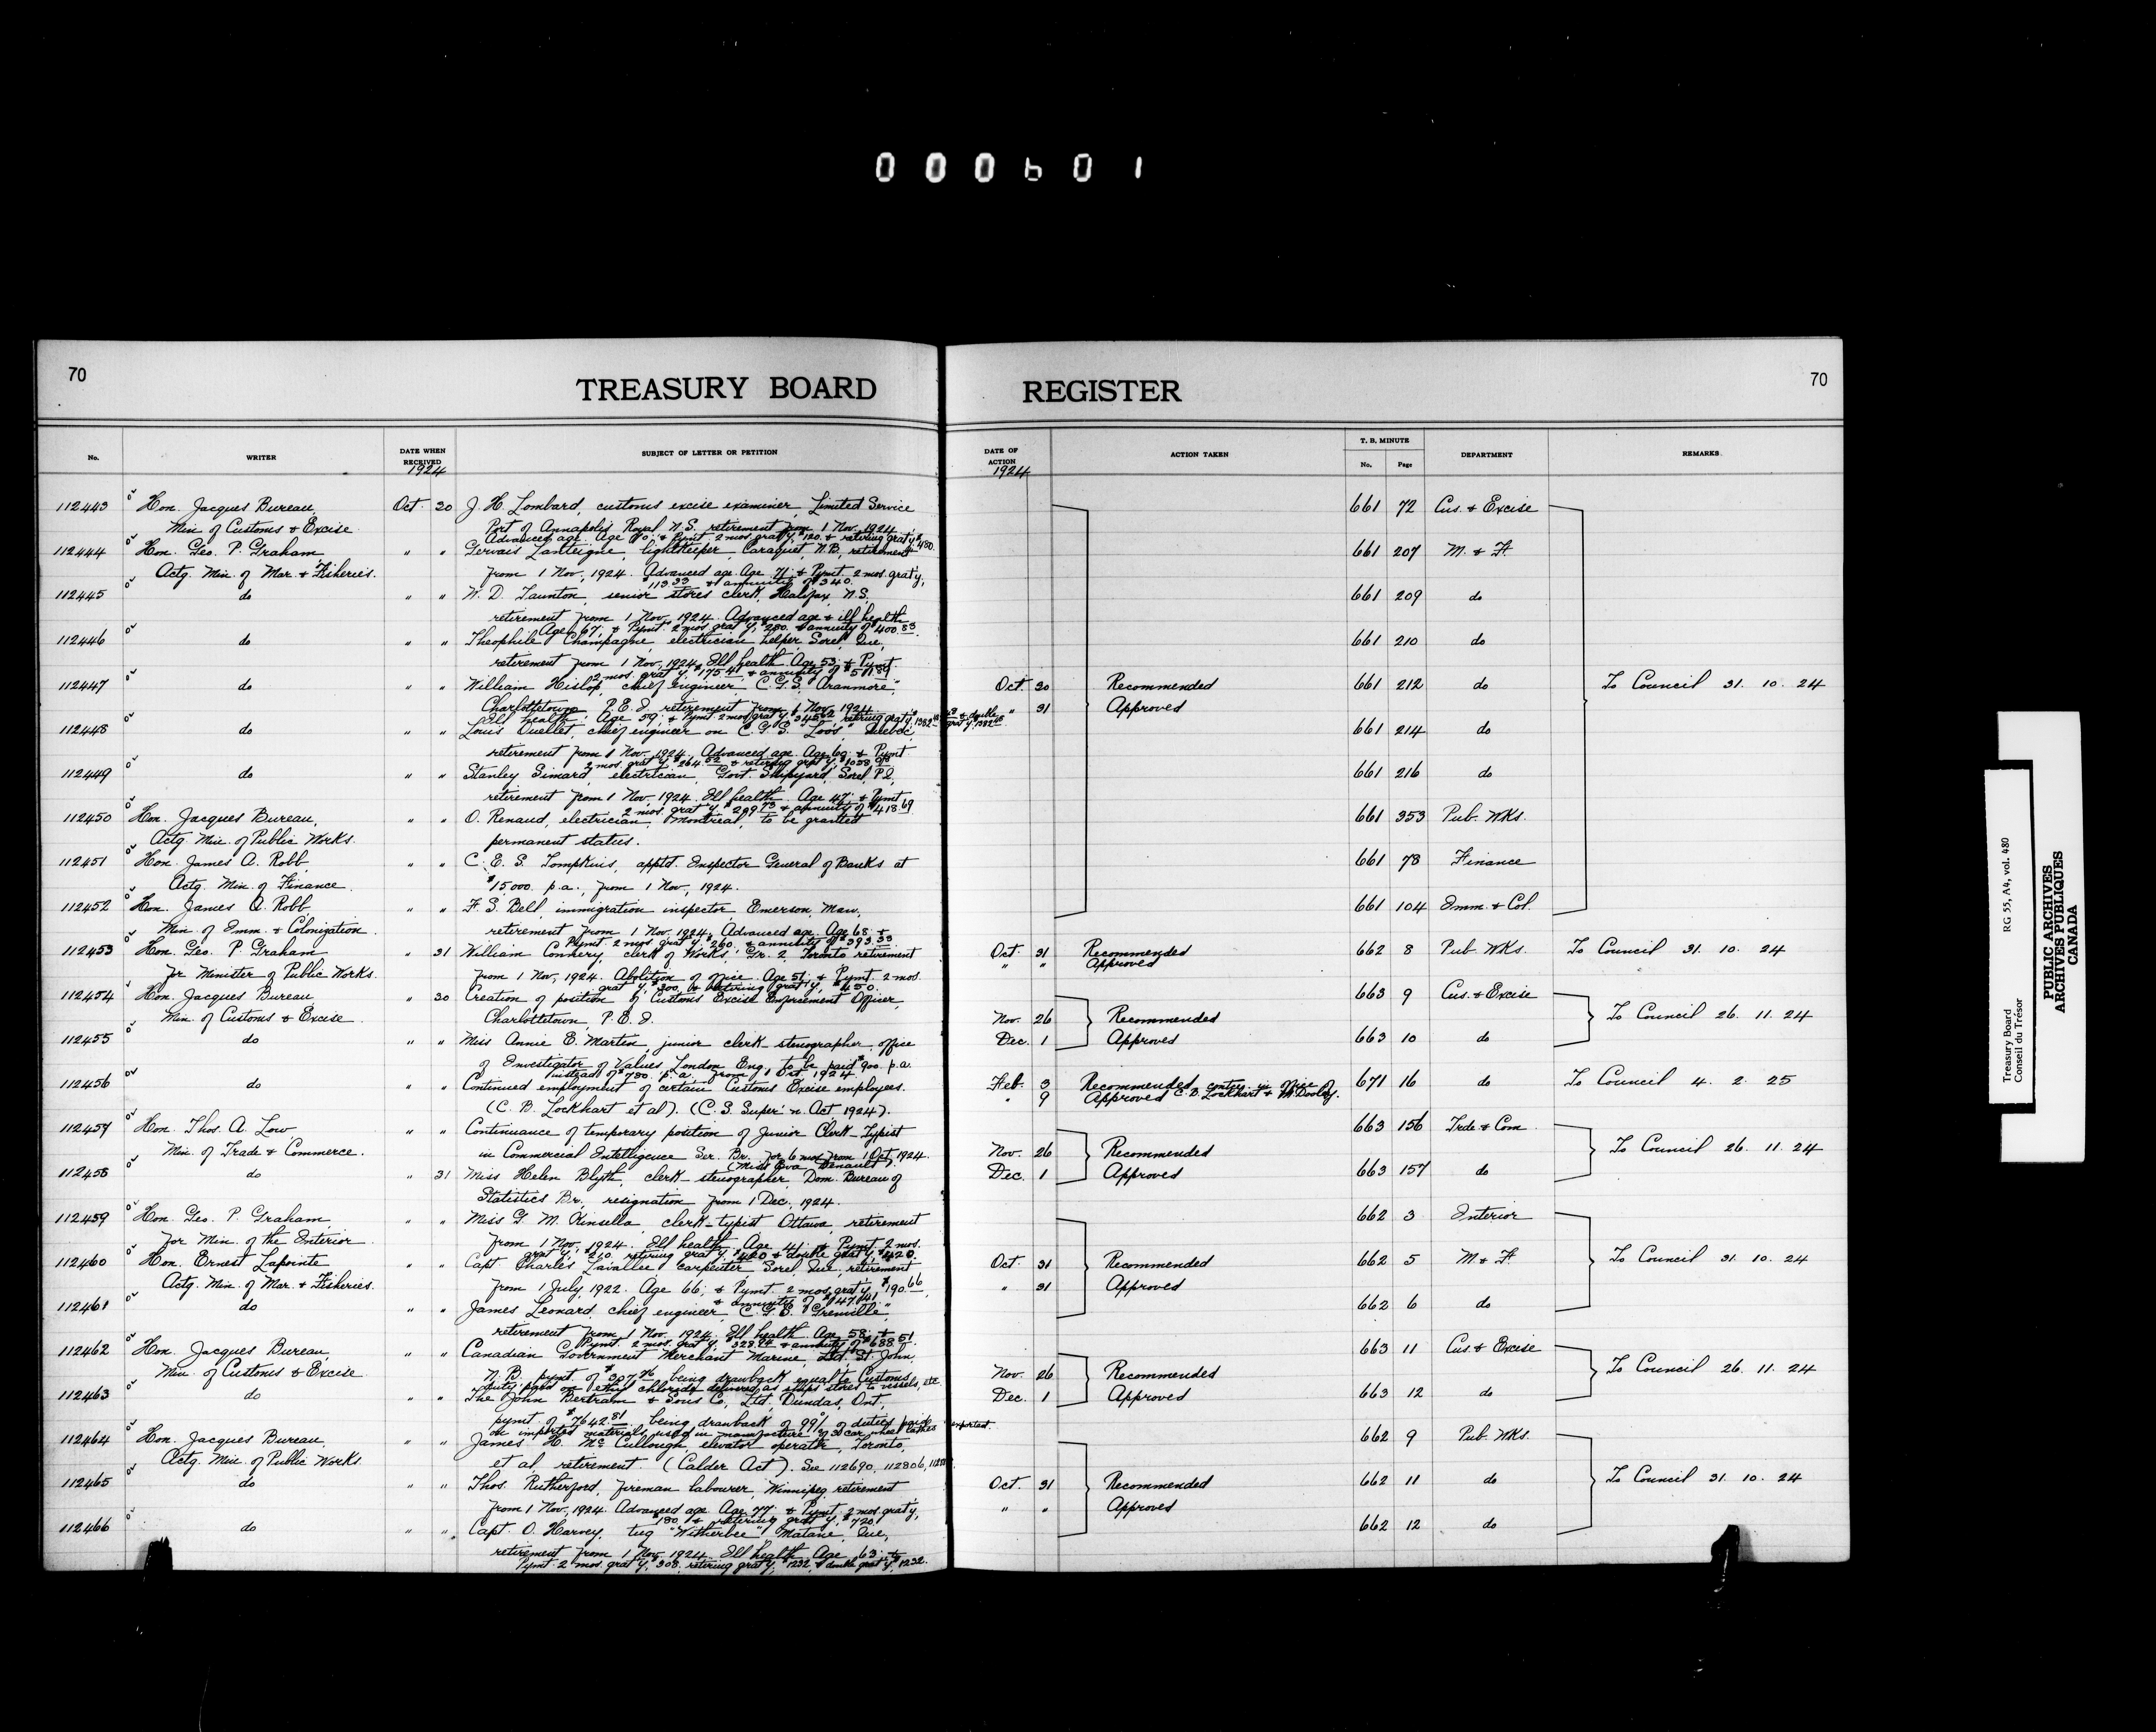 000601
70
TREASURY BOARD REGISTER
70
No. WRITER DATE WHEN RECEIVED SUBJECT OF LETTER OR PETITION DATE OF ACTION ACTION TAKEN T. B. MINUTE No. Page DEPARTMENT REMARKS
1924 1924
112443 Hon. Jacques Bureau, Oct. 20 J. H. Lombard, customs excise examiner, Limited Service 661 72 Cus. & Excise
Min. of Customs & Excise Port of Annapolis Royal N.S. retirement from 1 Nov. 1924.
Advanced age. Age 70; & Pymt. 2 mos grat'y, $120. & retiring grat'y, $480.
112444 Hon. Geo. P. Graham " " Gervais Lanteigne, lightkeeper Caraquet, N.B., retirement 661 207 M. & F.
Actg. Min. of Mar. & Fisheries. from 1 Nov., 1924. Advanced age. Age 71; & Pymt. 2 mos. grat'y,
113.33 & annuity of $340.
112445 do " " W. D. Taunton, senior stores clerk, Halifax, N.S. 661 209 do
retirement from 1 Nov. 1924. Advanced age & ill health
Age 67; & Pymt. 2 mos grat'y, $280. & annuity of $400.83.
112446 do " " Theophile Champagne, electrician helper Sorel, Que, 661 210 do
retirement from 1 Nov., 1924. Ill health. Age 53; & Pymt.
2 mos. grat'y, $175.41 & annuity of
112447 do " " William Hislop, chief engineer C.G.S. "Aranmore", Oct. 30 Recommended 661 212 do To Council 31. 10. 24
Charlottetown P.E.I. retirement from 1 Nov. 1924 " 31 Approved
Ill health. Age 59; & Pymt. 2 mos grat'y, retiring grat'y, & double grat'y,
112448 do " " Louis Ouellet, chief engineer on C.G.S. "Loos" Quebec, 661 214 do
retirement from 1 Nov. 1924. Advanced age. Age 69; & Pymt
2 mos. grat'y, $264.52 & retiring grat'y, $1058.08
112449 do " " Stanley Simard, electrician, Govt. Shipyard, Sorel P.Q. 661 216 do
retirement from 1 Nov. 1924. Ill health. Age 47; & Pymt
2 mos. grat'y, $209.73 & annuity of $418.69.
112450 Hon. Jacques Bureau, " " O. Renaud, electrician, Montreal, to be granted 661 353 Pub. Wks.
Actg. Min. of Public Works. permanent status.
112451 Hon. James A. Robb " " C. E. S. Tompkins, apptd. Inspector General of Banks at 661 78 Finance
Actg. Min. of Finance. $15,000. p.a., from 1 Nov., 1924.
112452 Hon. James A. Robb " " F. S. Bell, immigration inspector, Emerson, Man., 661 104 Imm. & Col.
Min. of Imm. & Colonization. retirement from 1 Nov. 1924. Advanced age. Age 68; &
Pymt. 2 mos grat'y, $260. & annuity of $393.33
112453 Hon. Geo. P. Graham " 31 William Connery, clerk of Works, Gr. 2, Toronto retirement Oct. 31 Recommended 662 8 Pub. Wks. To Council 31. 10. 24
for Minister of Public Works. from 1 Nov, 1924. Abolition of office. Age 51; & Pymt. 2 mos. " " Approved
grat'y, $300. & retiring grat'y, $450.
112454 Hon. Jacques Bureau " 30 Creation of position of Customs Excise Enforcement Officer, 663 9 Cus. & Excise
Min. of Customs & Excise. Charlottetown, P.E.I. Nov. 26 Recommended To Council 26. 11. 24
112455 do " " Miss Annie E. Martin, junior clerk-stenographer, office Dec. 1 Approved 663 10 do
of Investigator of Values, London Eng. to be paid $900. p.a.
instead of $780. p.a. from 1 Oct. 1924.
112456 do " " Continued employment of certain Customs Excise employees. Feb. 3 Recommended 671 16 do To Council 4. 2. 25
(C. B. Lockhart et al). (C. S. Super'n Act, 1924). " 9 Approved C. B. Lockhart & M. Dooley.
112457 Hon. Thos. A. Low " " Continuance of temporary position of Junior Clerk-Typist 663 156 Trde & Com.
Min. of Trade & Commerce. in Commercial Intelligence Ser. Br. for 6 mos from 1 Oct. 1924. Nov. 26 Recommended To Council 26. 11. 24
(Miss Eva Renault).
112458 do " 31 Miss Helen Blyth, clerk-stenographer, Dom. Bureau of Dec. 1 Approved 663 157 do
Statistics Br., resignation from 1 Dec. 1924.
112459 Hon. Geo. P. Graham, " " Miss G. M. Kinsella, clerk-typist Ottawa, retirement 662 3 Interior
for Min. of the Interior from 1 Nov., 1924. Ill health. Age 41; & Pymt. 2 mos.
grat'y, $210. retiring grat'y, $420 & double grat'y, $420.
112460 Hon. Ernest Lapointe " " Capt. Charles Lavallee carpenter Sorel, Que., retirement Oct. 31 Recommended 662 5 M & F. To Council 31. 10. 24
Actg. Min. of Mar. & Fisheries. from 1 July 1922. Age 66; & Pymt. 2 mos grat'y, $190.66, " 31 Approved
& annuity of
112461 do " " James Leonard, chief engineer, C.G.S. "Grenville", 662 6 do
retirement from 1 Nov. 1924. Ill health. Age 58; &
Pymt. 2 mos. grat'y, & annuity of $688.51.
112462 Hon. Jacques Bureau, " " Canadian Government Merchant Marine, Ltd. St. John, 663 11 Cus. & Excise
Min. of Customs & Excise N.B. pymt. of being drawback equal to Customs Nov. 26 Recommended To Council 26. 11. 24
duty paid on ethyl chloride delivered as ships' stores to vessels, etc.
112463 do " " The John Bertram & Sons Co., Ltd. Dundas, Ont., Dec. 1 Approved 663 12 do
pymt. of $7642.81 being drawback of 99% of duties paid
on imported materials used in manufacture of 30 car wheel lathes exported.
112464 Hon. Jacques Bureau " " James H. McCullough, elevator operator, Toronto, 662 9 Pub. Wks.
Actg. Min. of Public Works. et al retirement (Calder Act). See 112690, 112806,
112465 do " " Thos. Rutherford, fireman labourer, Winnipeg retirement Oct. 31 Recommended 662 11 do To Council 31. 10. 24
from 1 Nov., 1924. Advanced age. Age 77; & Pymt. 2 mos. grat'y, " " Approved
$180. & retiring grat'y, $720.
112466 do " " Capt. O. Harvey, tug "Witherbee" Matane, Que., 662 12 do
retirement from 1 Nov. 1924. Ill health. Age 63; &
Pymt 2 mos. grat'y, $308. retiring grat'y, $1232. & double grat'y, $1232.
Treasury Board RG 55, A4, vol. 480
Conseil du Trésor
PUBLIC ARCHIVES
ARCHIVES PUBLIQUES
CANADA